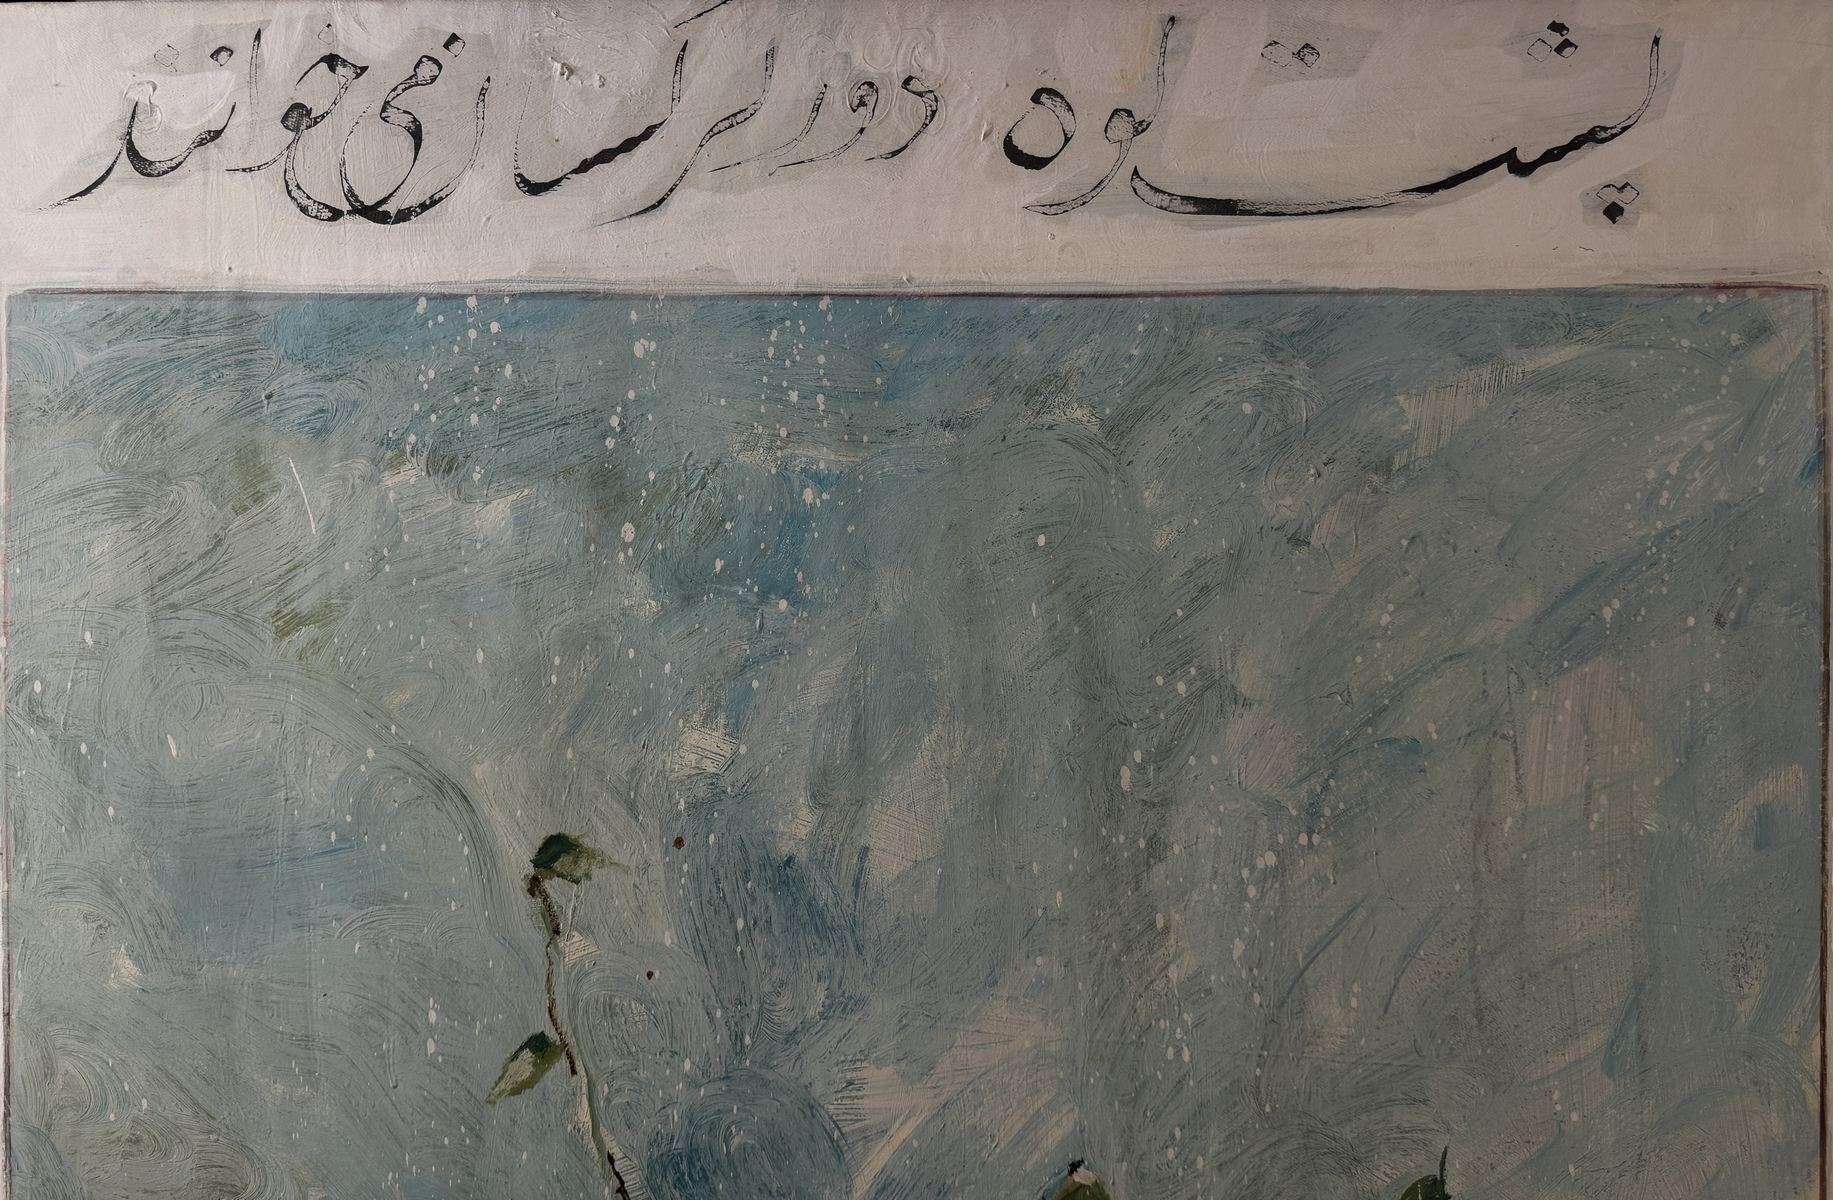 پشت کوه دور کسان می خوانند